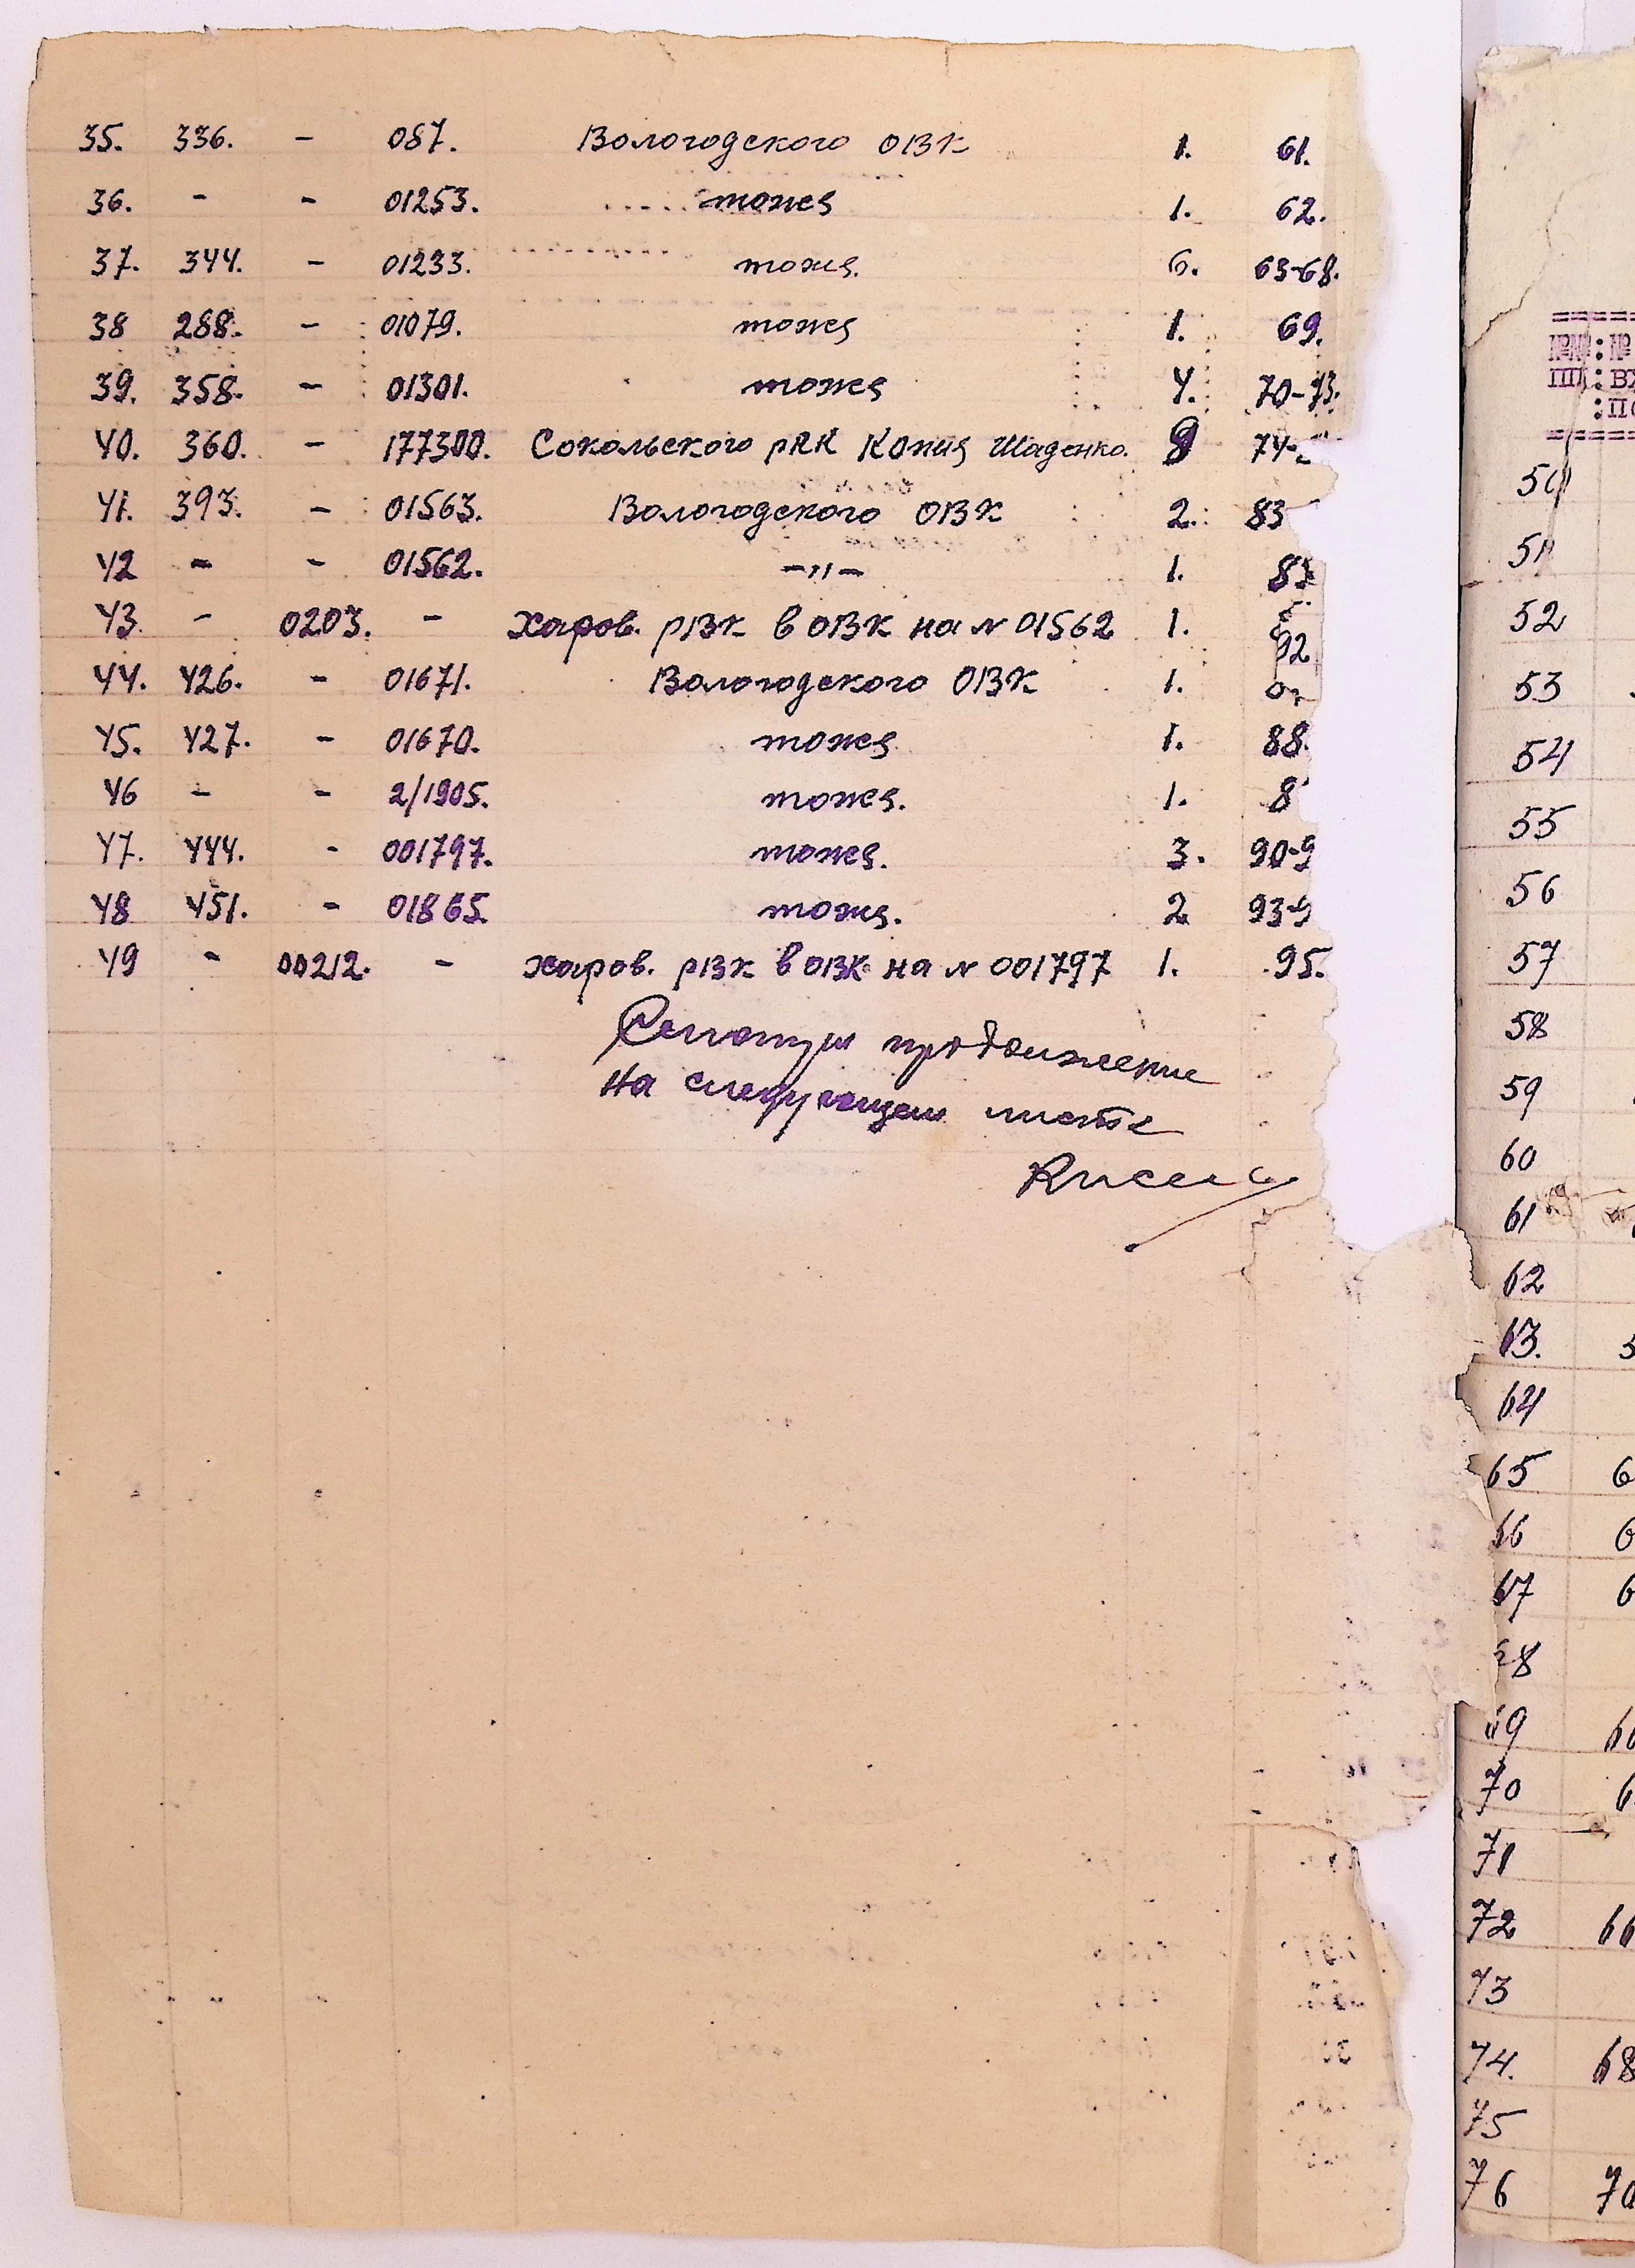 35. 336. - 087. Вологодского ОВК 1. 61.
36. - - 01253. тоже 1. 62.
37. 344. - 01233. тоже. 6. 63-68.
38 288. - 01079. тоже 1. 69.
39. 358. - 01301. тоже 4. 70-73.
40. 360. - 177300. Сокольского РВК Копия Щаденко. 9 74-
41. 393. - 01563. Вологодского ОВК 2. 83
42 - - 01562. -"- 1. 85
43. - 0203. - Харов. РВК в ОВК на № 01562 1.
92
44. 426. - 01671. Вологодского ОВК 1.
45. 427. - 01670. тоже 1. 88.
46 - - 2/1905. тоже. 1. 8
47. 444. - 001797. тоже. 3. 90-9
48 451. - 01865. тоже. 2 93-9
49 - 00212. - Харов. РВК в ОВК на № 001797 1. 95.
Смотри продолжение
на следующем листе
№№ : №
ПП : ВХ
: ПО
50
51
52
53
54
55
56
57
58
59
60
61
62
63. 5
64
65 6
66 6
67 6
68
69 66
70 6
71
72 66
73
74. 68
75
76 70